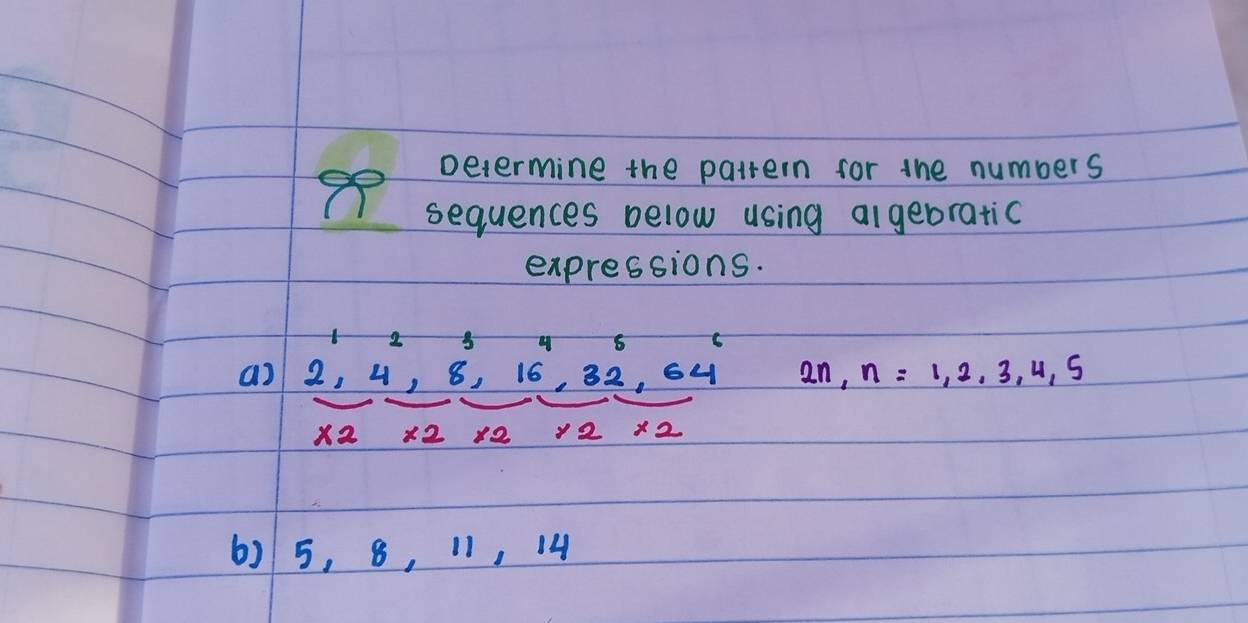 2
Determine the pattern for the numbers
sequences below using algebratic
expressions.
1 2 3 4 5 6
a) 2, 4, 8, 16, 32, 64 2n, n = 1, 2, 3, 4, 5
×2 ×2 ×2 ×2 ×2
b) 5, 8, 11, 14